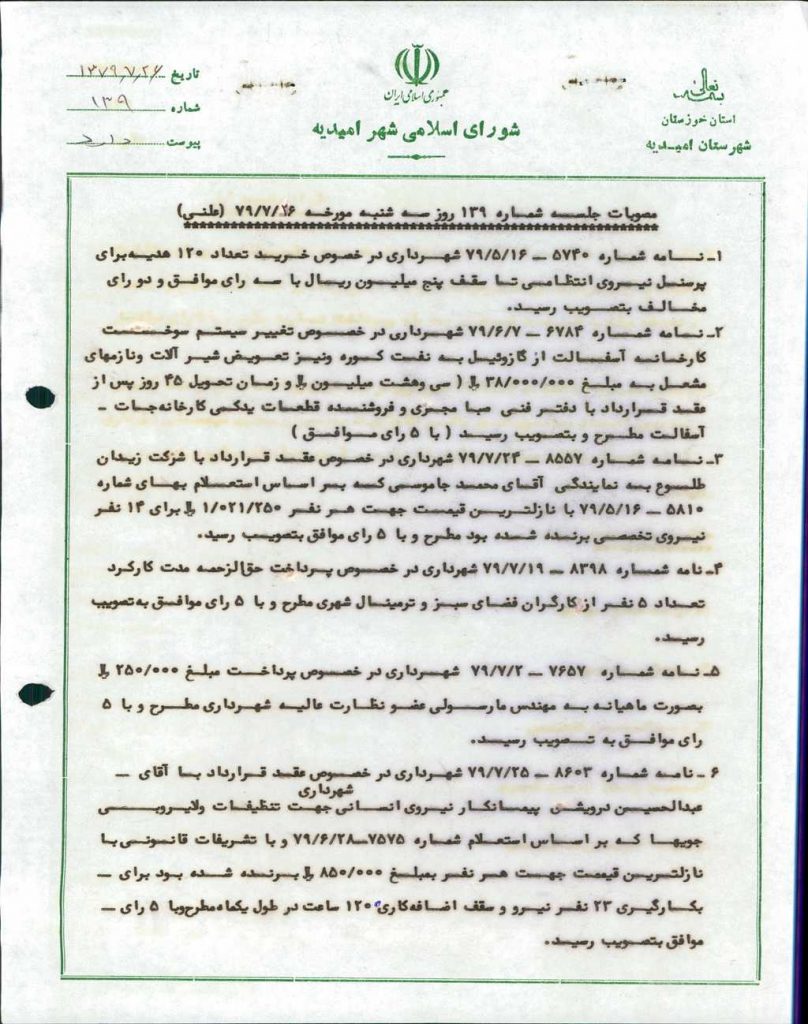 بسمه تعالی
استان خوزستان
شهرستان امیدیه
جمهوری اسلامی ایران
شورای اسلامی شهر امیدیه
تاریخ ۱۳۷۹٫۷٫۲۶
شماره ۱۳۹
پیوست دارد
مصوبات جلسه شماره ۱۳۹ روز سه شنبه مورخه ۷۹/۷/۲۶ (علنی)
۱ـ نامه شماره ۵۷۴۰ ــ ۷۹/۵/۱۶ شهرداری در خصوص خرید تعداد ۱۲۰ هدیه برای
پرسنل نیروی انتظامی تا سقف پنج میلیون ریال با سه رای موافق و دو رای
مخالف بتصویب رسید.
۲ـ نامه شماره ۶۷۸۴ ــ ۷۹/۶/۷ شهرداری در خصوص تغییر سیستم سوخت
کارخانه آسفالت از گازوئیل به نفت کوره ونیز تعویض شیر آلات ونازلهای
مشعل به مبلغ ۳۸/۰۰۰/۰۰۰ ﷼ ( سی وهشت میلیون ﷼ و زمان تحویل ۴۵ روز پس از
عقد قرارداد با دفتر فنی صبا مجری و فروشنده قطعات یدکی کارخانه‌جات ـ
آسفالت مطرح و بتصویب رسید ( با ۵ رای موافق )
۳ـ نامه شماره ۸۵۵۷ ــ ۷۹/۷/۲۴ شهرداری در خصوص عقد قرارداد با شرکت زیدان
طلوع به نمایندگی آقای محمد جاموسی که بر اساس استعلام بهای شماره
۵۸۱۰ ــ ۷۹/۵/۱۶ با نازلترین قیمت جهت هر نفر ۱/۰۲۱/۲۵۰ ﷼ برای ۱۴ نفر
نیروی تخصصی برنده شده بود مطرح و با ۵ رای موافق بتصویب رسید.
۴ـ نامه شماره ۸۳۹۸ ــ ۷۹/۷/۱۹ شهرداری در خصوص پرداخت حق‌الزحمه مدت کارکرد
تعداد ۵ نفر از کارگران فضای سبز و ترمینال شهری مطرح و با ۵ رای موافق به‌تصویب
رسید.
۵ـ نامه شماره ۷۶۵۷ ــ ۷۹/۷/۲ شهرداری در خصوص پرداخت مبلغ ۲۵۰/۰۰۰ ﷼
بصورت ماهیانه به مهندس مارسولی عضو نظارت عالیه شهرداری مطرح و با ۵
رای موافق به تصویب رسید.
۶ ـ نامه شماره ۸۶۰۳ ــ ۷۹/۷/۲۵ شهرداری در خصوص عقد قرارداد با آقای ــ
شهرداری
عبدالحسین درویشی پیمانکار نیروی انسانی جهت تنظیفات ولایروبی
جویها که بر اساس استعلام شماره ۷۵۷۵ــ۷۹/۶/۲۸ و با تشریفات قانونی با
نازلترین قیمت جهت هر نفر بمبلغ ۸۵۰/۰۰۰ ﷼ برنده شده بود برای ــ
بکارگیری ۲۳ نفر نیرو و سقف اضافه‌کاری ۱۲۰ ساعت در طول یکماه مطرح وبا ۵ رای ــ
موافق بتصویب رسید.